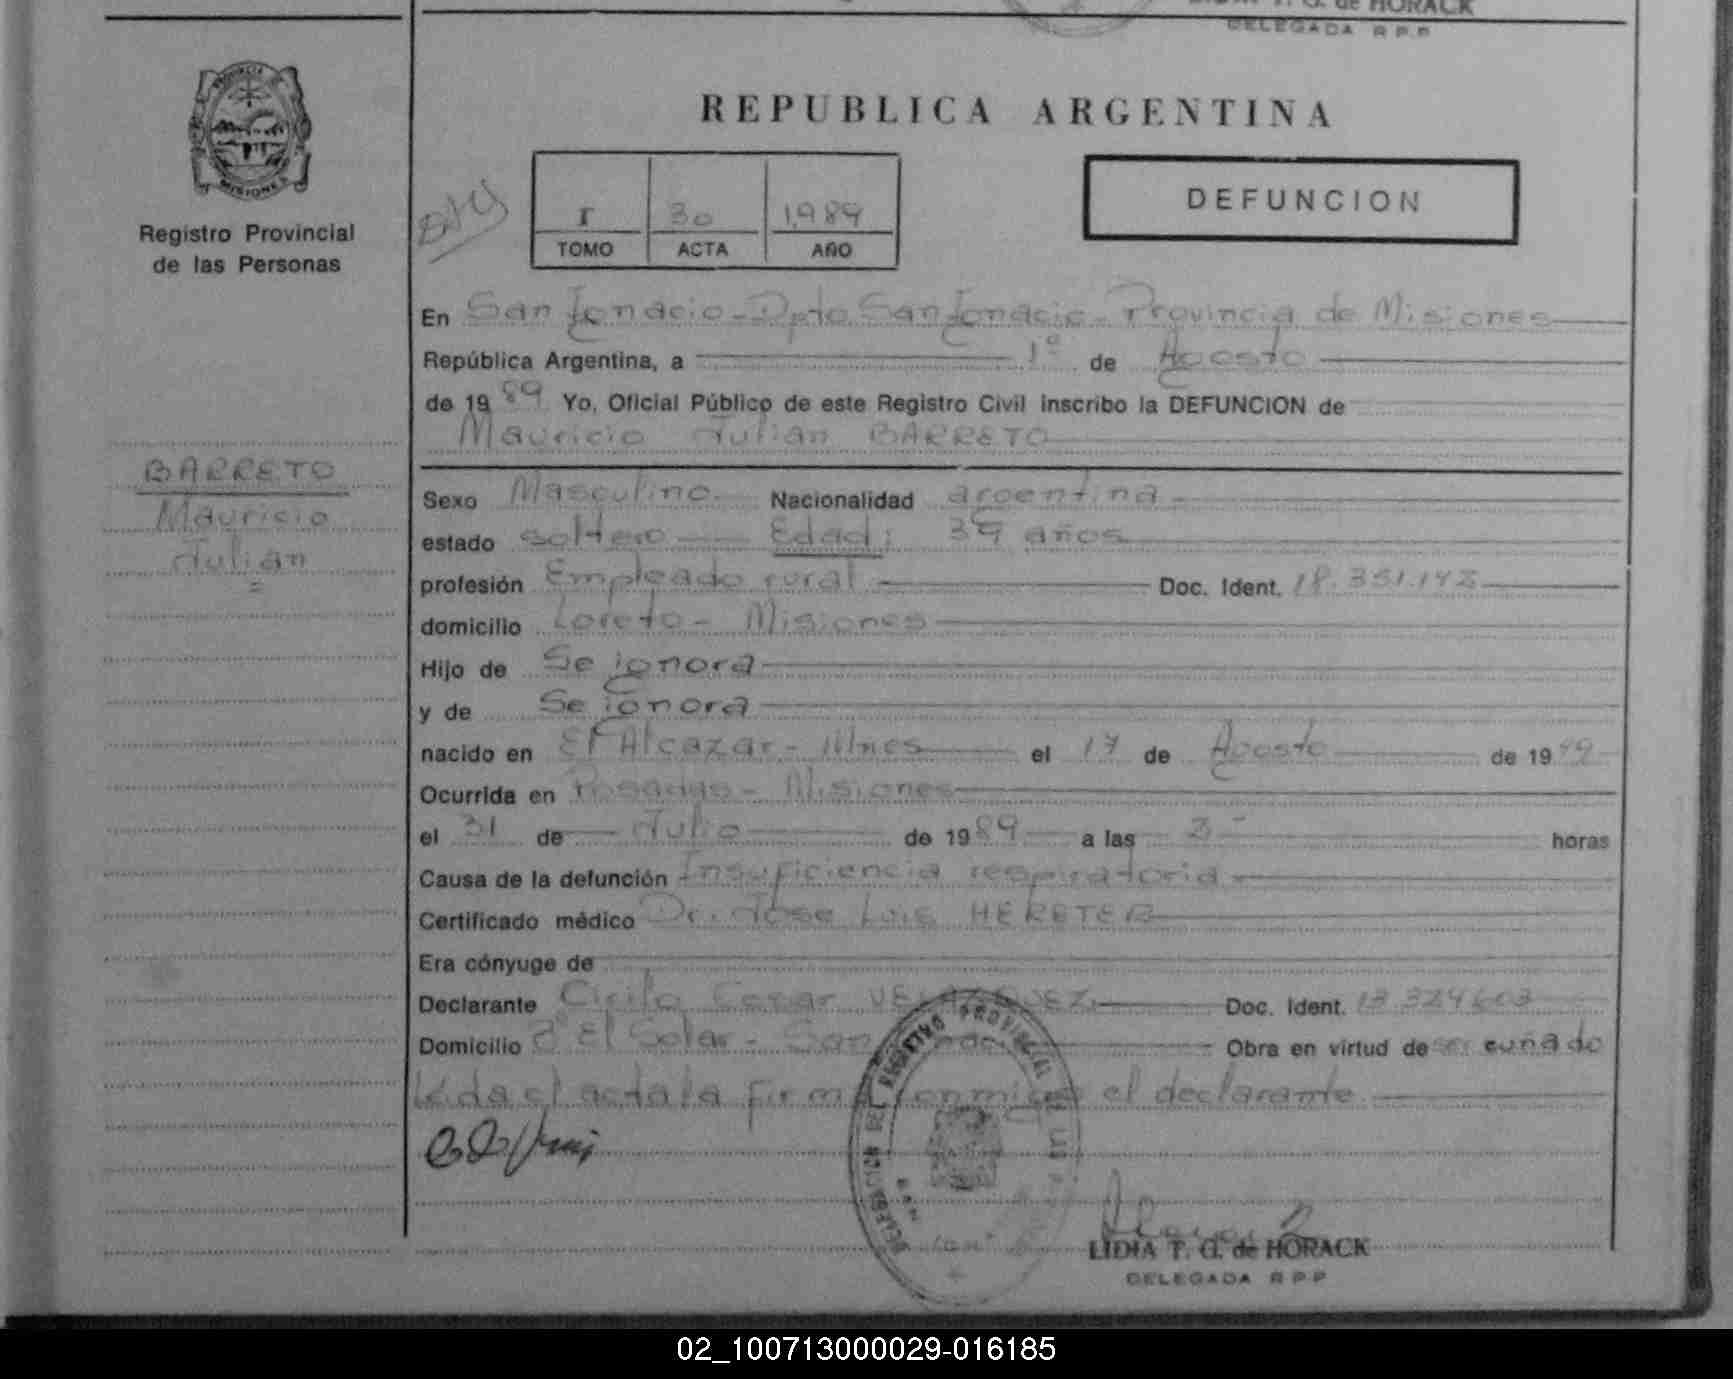 LIDIA T. G. de HORACK
DELEGADA R P P
PROVINCIA DE
MISIONES
Registro Provincial
de las Personas
REPUBLICA ARGENTINA
I 30 1,989
TOMO ACTA AÑO
DEFUNCION
En San Ignacio - Dpto San Ignacio - Provincia de Misiones
República Argentina, a 1º de Agosto
de 1989 Yo, Oficial Público de este Registro Civil inscribo la DEFUNCION de
Mauricio Julian BARRETO
BARRETO
Mauricio
Julian
=
Sexo Masculino Nacionalidad argentina
estado soltero Edad: 39 años
profesión Empleado rural Doc. Ident. 18.351.142
domicilio Loreto - Misiones
Hijo de Se ignora
y de Se ignora
nacido en El Alcazar - Mnes el 17 de Agosto de 1949
Ocurrida en Posadas - Misiones
el 31 de Julio de 1989 a las 3 - horas
Causa de la defunción Insuficiencia respiratoria
Certificado médico Dr. Jose Luis HERETER
Era cónyuge de
Declarante Cirilo Cesar VELAZQUEZ Doc. Ident. 13.324603
Domicilio Bº El Solar - San Obra en virtud de ser cuñado
Leida el acta la firma conmigo el declarante
DELEGACION DEL REGISTRO PROVINCIAL DE LAS
LIDIA T. G. de HORACK
DELEGADA R P P
02_100713000029-016185